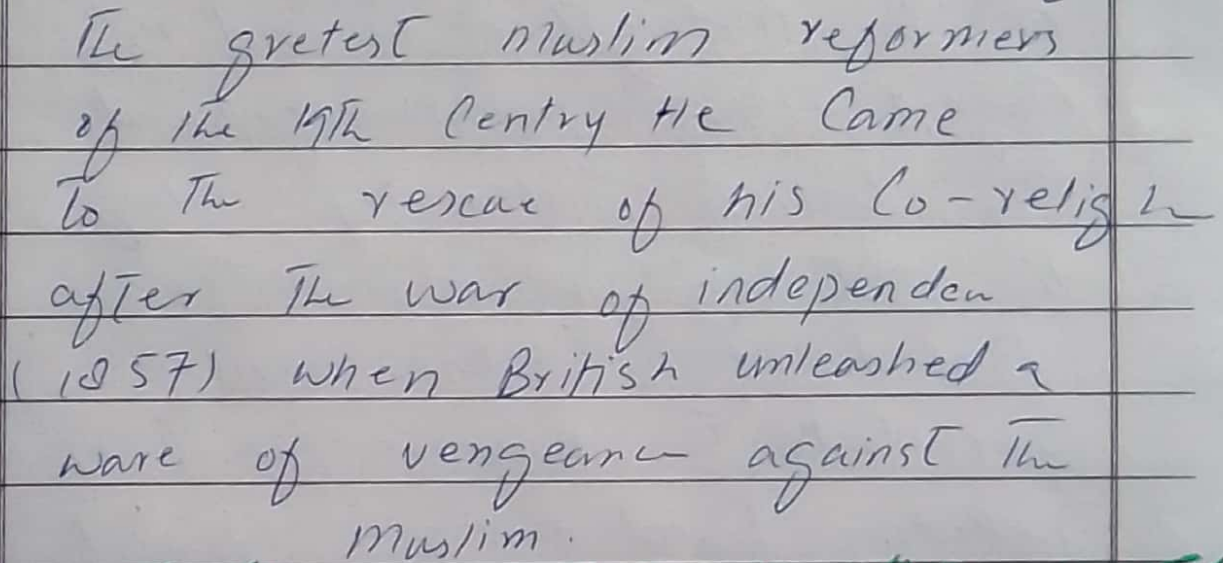 The gretest muslim reformers
of the 19th Centry He Came
To The rescue of his Co-relig
after The war of independen
(1857) when British unleashed a
ware of vengeance against The
muslim.